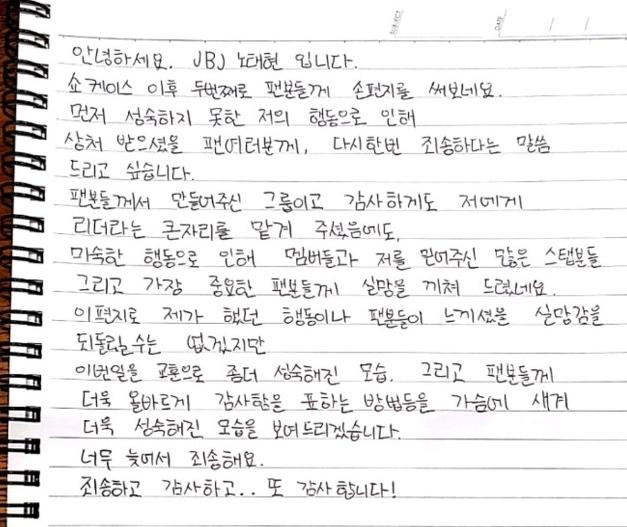 SUBJECT
DATE / /
안녕하세요. JBJ 노태현 입니다.
쇼케이스 이후 두번째로 팬분들께 손편지를 써보네요.
먼저 성숙하지 못한 저의 행동으로 인해
상처 받으셨을 팬여러분께, 다시한번 죄송하다는 말씀
드리고 싶습니다.
팬분들께서 만들어주신 그룹이고 감사하게도 저에게
리더라는 큰자리를 맡겨 주셨음에도,
미숙한 행동으로 인해 멤버들과 저를 믿어주신 많은 스탭분들
그리고 가장 중요한 팬분들께 실망을 끼쳐 드렸네요.
이편지로 제가 했던 행동이나 팬분들이 느끼셨을 실망감을
되돌릴수는 없겠지만
이번일을 교훈으로 좀더 성숙해진 모습. 그리고 팬분들께
더욱 올바르게 감사함을 표하는 방법등을 가슴에 새겨
더욱 성숙해진 모습을 보여드리겠습니다.
너무 늦어서 죄송해요.
죄송하고 감사하고.. 또 감사합니다!